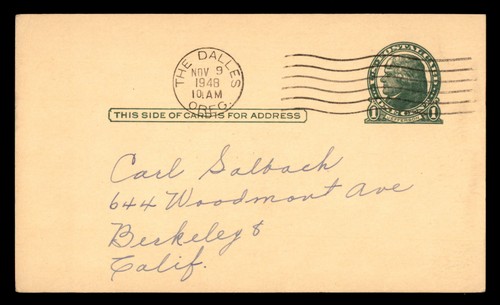 THE DALLES
NOV 9
1948
10 AM
OREG.
THIS SIDE OF CARD IS FOR ADDRESS
U.S. POSTAGE
1 1
JEFFERSON
Carl Salbach
644 Woodmont Ave
Berkeley 8
Calif.